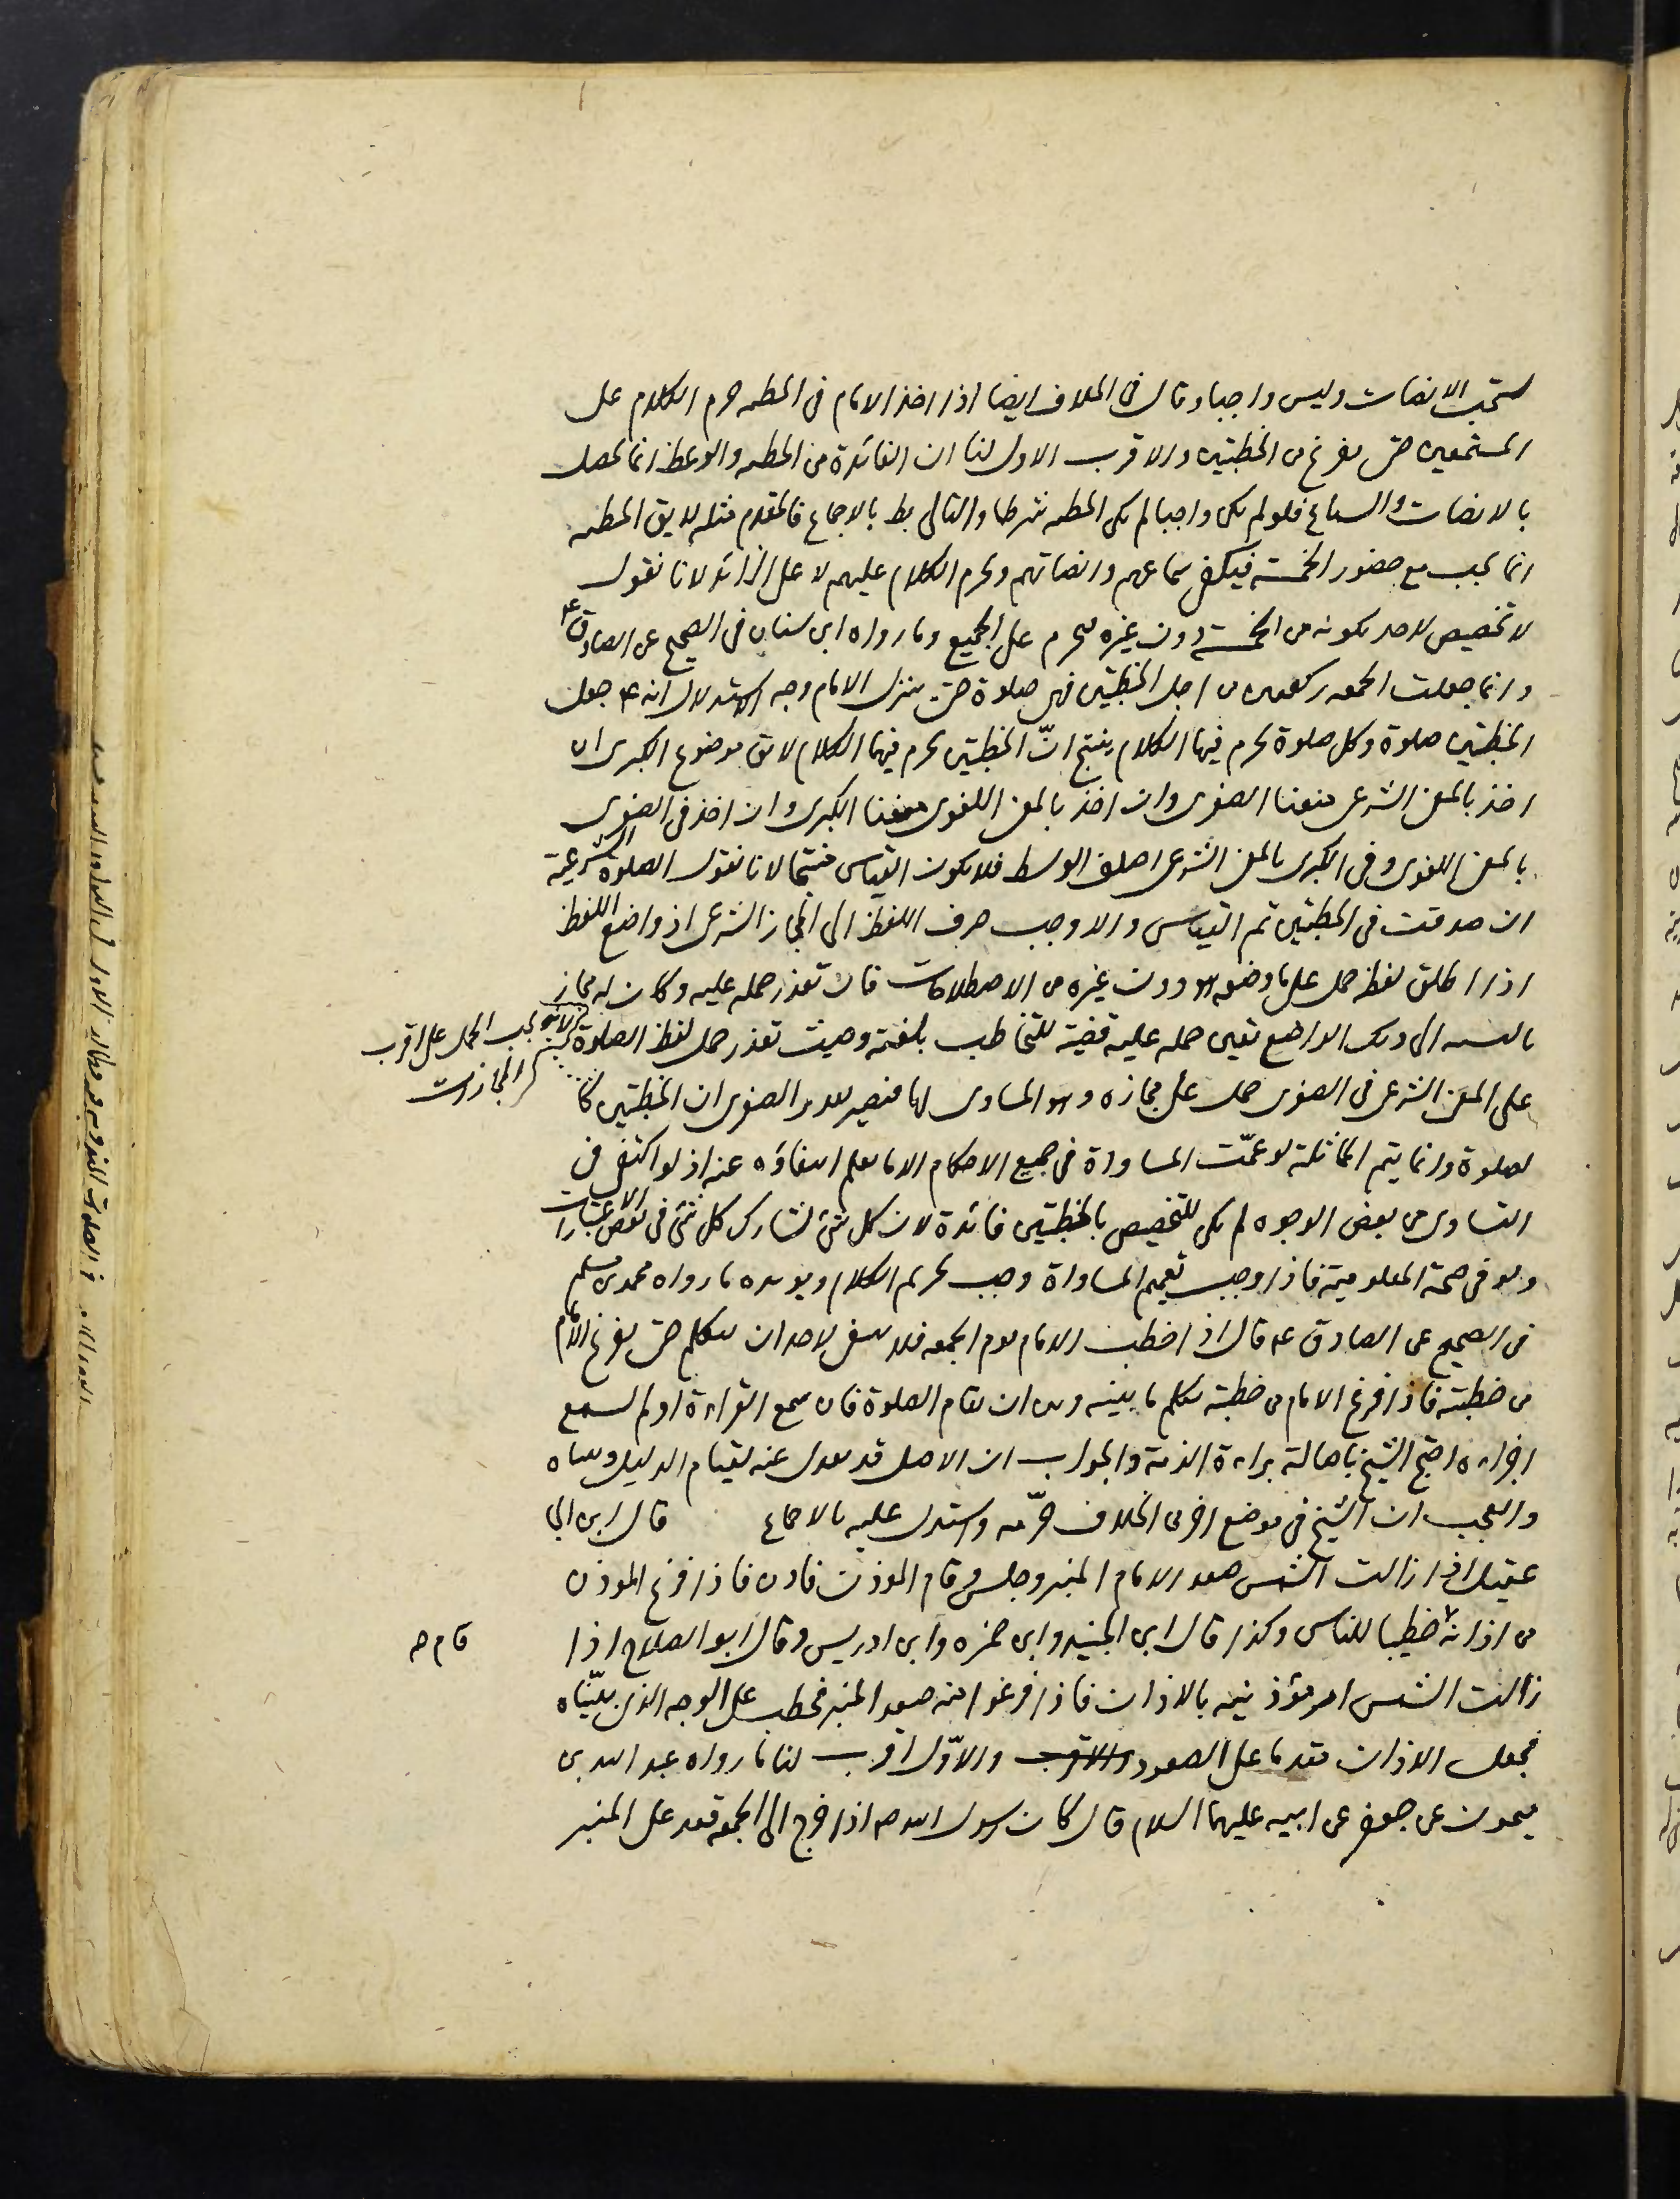 يستحب الانصات وليس واجبا وقال في الخلاف ايضا اذا اخذ الامام في الخطبه حرم الكلام على
المستمعين حتى يفرغ من الخطبتين والاقرب الاول لنا ان الفائدة من الخطبه والوعظ انما تحصل
بالانصات والسماع فلو لم يكن واجبا لم يكن الخطبه شرطا والتالى بط بالاجماع فالمقدم مثله لا يق الخطبه
انما تجب مع حضور الخمسة فيكفى سماعهم وانصاتهم ويحرم الكلام عليهم لا على الزائد لانا نقول
لا تخصيص لاحد بكونه من الخمسة دون غيره فيحرم على الجميع وما رواه ابن سنان في الصحيح عن الصادق ع
وانما جعلت الجمعه ركعتين من اجل الخطبتين فهى صلوة حتى ينزل الامام وجه الاستدلال انه ع جعل
الخطبتين صلوة وكل صلوة يحرم فيها الكلام ينتج انّ الخطبتين يحرم فيهما الكلام لا يق موضوع الكبرى ان
اخذ بالمعنى الشرعى منعنا الصغرى وان اخذ بالمعنى اللغوى منعنا الكبرى وان اخذ في الصغرى
بالمعنى اللغوى وفى الكبرى بالمعنى الشرعى اختلف الوسط فلا يكون القياس منتجا لانا نقول الصلوة الشرعية
ان صدقت في الخطبتين تم القياس والا وجب صرف اللفظ الى المجاز الشرعى اذ واضع اللفظ
اذا اطلق لفظه حمل على ما وضعه هو دون غيره من الاصطلاحات فان تعذر حمله عليه وكان له مجاز
بالنسبه الى ذلك الواضع تعين حمله عليه قضية للتخاطب بلغته وحيث تعذر حمل لفظ الصلوة
لانه يجب الحمل على اقرب
المجازات
على المعنى الشرعى في الصغرى حمل على مجازه وهو المساوى لها فيصير تقدير الصغرى ان الخطبتين كا
لصلوة وانما يتم المماثلة لو عمّت المساواة في جميع الاحكام الا ما يعلم انتفاؤه عنه اذ لو اكتفى في
التساوى من بعض الوجوه لم يكن للتخصيص بالخطبتين فائدة لان كل شئ لتشارك كل شئ في بعض الاعتبارات
ولو في صحة المعلومية فاذا وجب تعميم المساواة وجب تحريم الكلام ويؤيده ما رواه محمد بن مسلم
في الصحيح عن الصادق ع قال اذا خطب الامام يوم الجمعه فلا ينبغى لاحد ان يتكلم حتى يفرغ الامام
من خطبته فاذا فرغ الامام من خطبته تكلم ما بينه وبين ان يقام الصلوة فان سمع القراءة او لم يسمع
اجزاءه احتج الشيخ باصالة براءة الذمة والجواب ان الاصل قد يعدل عنه لقيام الدليل وبيناه
والعجب ان الشيخ في موضع اخر من الخلاف حرّمه واستدل عليه بالاجماع قال ابن ابى
عقيل اذا زالت الشمس صعد الامام المنبر وجلس وقام المؤذن فاذن فاذا فرغ المؤذن
من اذانه خطيبا للناس وكذا قال ابن الجنيد وابن حمزه وابن ادريس وقال ابو الصلاح اذا
قام صح
زالت الشمس امر مؤذنيه بالاذان فاذا فرغوا منه صعد المنبر فخطب على الوجه الذى بيّناه
فجعل الاذان مقدما على الصعود والاقرب والاوّل اقرب لنا ما رواه عبد الله بن
ميمون عن جعفر عن ابيه عليهما السلام قال كان رسول الله ص اذا خرج الى الجمعه قعد على المنبر